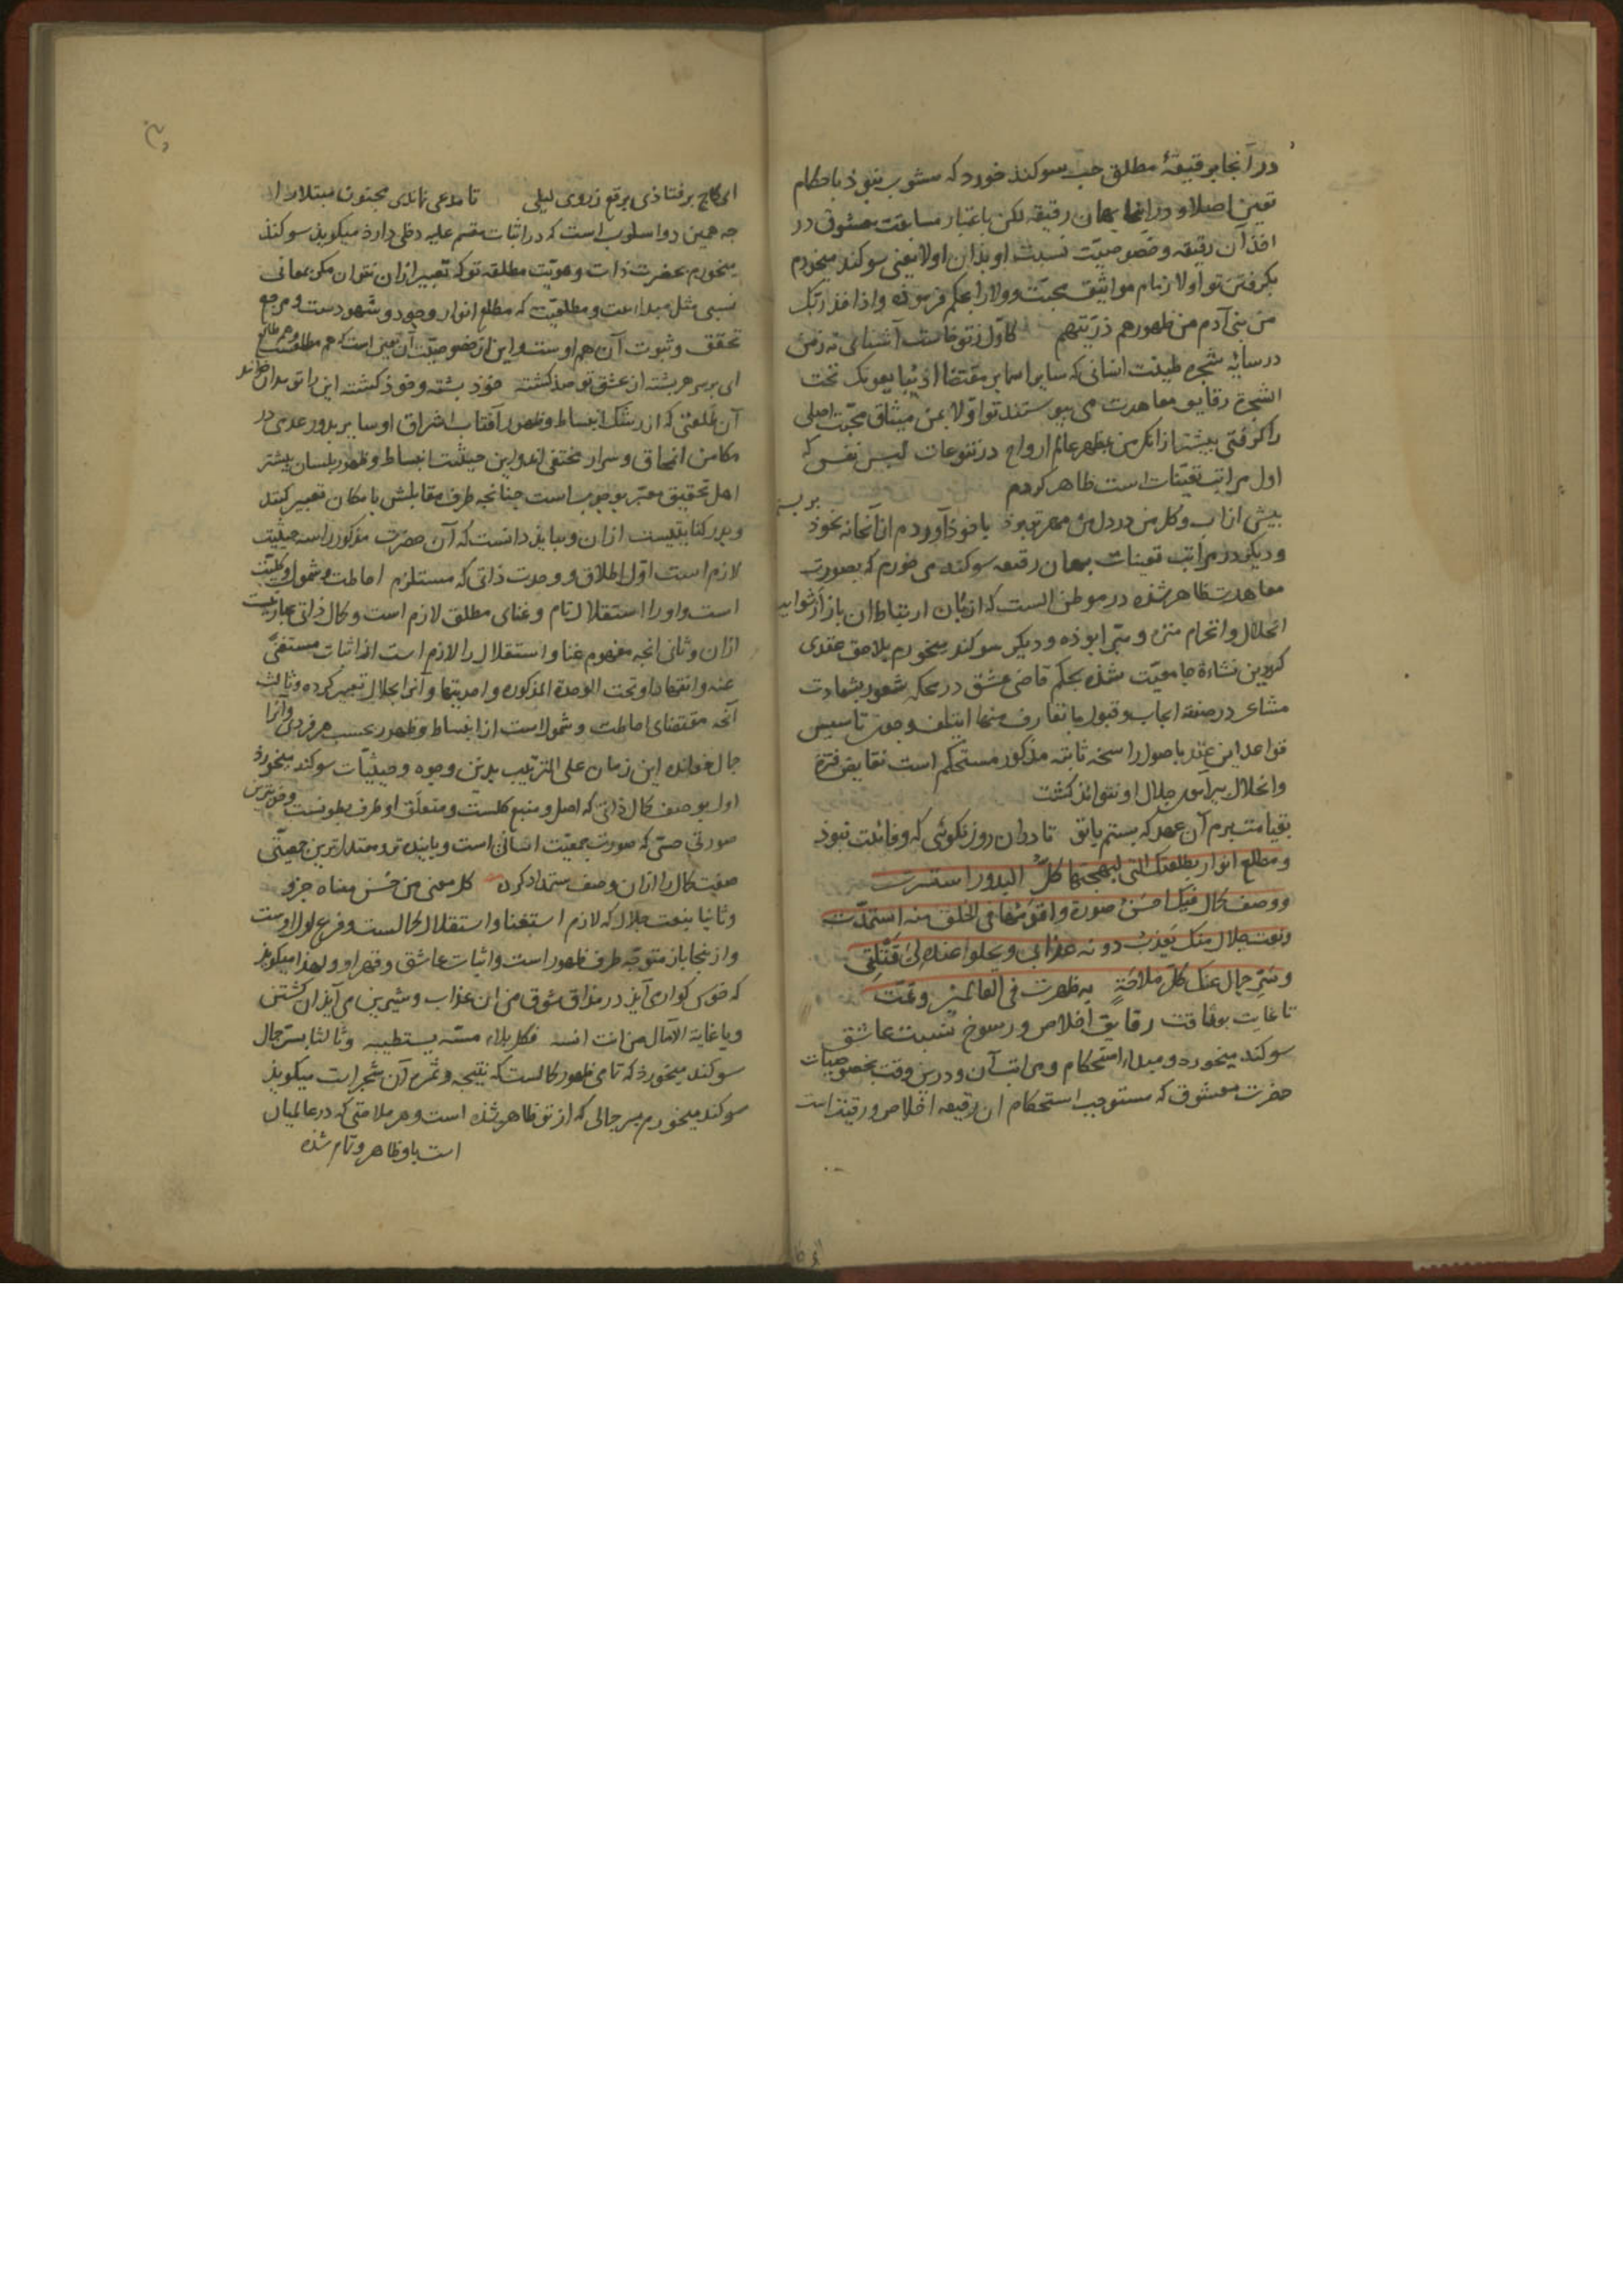 در آنجا بر رقیقهٔ مطلق حب سوکند خورد که مشوب نبوذ باحکام
تعین اصلا و در اینجا بهمان رقیقه لکن باعتبار مساعت معشوق در
اخذ آن رقیقه و خصوصیت نسبت او بذان اولا یعنی سوکند میخورم
بکرفتن تو اولا زمام مواثیق محبت و ولا را بحکم فرموده واذ اخذ ربک
من بنی آدم من ظهورهم ذریتهم کاول ز تو خاست آشنائی نه زمن
در سایهٔ شجره طینت انسانی که سایر اسما بر مقتضا اذ یبایعونک تحت
الشجرة رقایق معاهدت می پیوستند تو اولا بمن میثاق محبت اصلی
را کرفتی بیشتر ازانکه من بمظهر عالم ارواح در تنوعات لبس نفس که
اول مراتب تعینات است ظاهر کردم
بیش از آب و کل من در دل من مهر تو بوذ با خوذ آوردم از آنجا نه بخوذ
بر بستم
و دیکر در مراتب تعینات بهمان رقیقه سوکند می خورم که بصورت
معاهدت ظاهر شده در موطن الست که ارکان ارتباط آن باز از شوایب
انحلال و انخرام منزه و مبرا بوذه و دیکر سوکند میخورم بلاحق عقدی
که درین نشاءة جامعیت شذه بحکم قاضی عشق در محکه شعور بشهادت
مشاعر در صفقه ایجاب و قبول ما تعارف منها ایتلف و چون تاسیس
قواعد این عقد باصول راسخه ثابته مذکور مستحکم است نقایض فتره
وانحلال بیرامن جلال او نتواند کشت
بقیامت برم آن عهد که بستم با تو تا دران روز نکوئی که وفائت نبوذ
ومطلع انوار بطلعتک التی لبهجتها کل البدور استسرت
ووصف کمال فیک احسن صورة واقومها فی الخلق منه استمدت
ونعت جلال منک یعذب دونه عذابی ویحلوا عنده لی قتلتی
وسر جمال عنک کل ملاحة به ظهرت فی العالمین وتمت
تا غایت بوثاقت رقایق اخلاص و رسوخ نسبت عاشق
سوکند میخورد و مبداء استحکام و مراتب آن و درین وقت بخصوصیات
حضرت معشوق که مستوجب استحکام ان رقیقه اخلاص و رقیت است
ای کاج بر فتاذی برقع ز روی لیلی تا مدعی نماندی مجنون مبتلا را
جه همین دو اسلوب است که در اثبات مقسم علیه دخلی دارذ میکویذ سوکند
میخورم بحضرت ذات و هویت مطلقه تو که تعبیر ازان نتوان مکر بمعانی
نسبی مثل مبدائیت و مطلعیت که مطلع انوار وجود و شهودست و مرجع
تحقق و ثبوت آن هم اوست و این از خصوصیت آن تعین است که هم مطلعست
و هم طالع
ای بر سر هر بشته از عشق تو صذ کشته خوذ بشته و خوذ کشته این را تو
آن طلعتی که از رشک انبساط و ظهور آفتاب اشراق او سایر بدور عدمی در
مکامن انمحاق و سرار مختفی اند و این حیثیت انبساط و ظهور بلسان بیشتر
اهل تحقیق معبر بوجوب است جنانجه طرف مقابلش بامکان تعبیر کنند
و بدر کنایتیست ازان و بباید دانست که آن حضرت مذکور را سه حیثیت
لازم است اول اطلاق و وحدت ذاتی که مستلزم احاطت و شمول و کلیت
است و او را استقلال تام و غنای مطلق لازم است و کمال ذاتی عبارتست
ازان و ثانی انجه مفهوم غنا و استقلال را لازم است از اثبات مستغنی
عنه وانقهار او تحت الوحدة المذکوره واحدیتها و آنرا بجلال تعبیر کرده و ثالث
آنجه مقتضای احاطت و شمول است از انبساط و ظهور بحسب هر فردی و انرا
جمال خوانده این زمان علی الترتیب بدین وجوه و حیثیات سوکند میخورد
اول بوصف کمال ذاتی که اصل و منبع کلست و متعلق او طرف بطونست
صورتی حسی که صورت جمعیت انسانی است و باینده ترو معتدلترین جمعیتی
صفت کمال را ازان وصف ستمداد کرده کل معنی من حسن معناه جزو
و ثانیا بنعت جلال که لازم استغنا و استقلال کمالست و فرع اول اوست
و از ینجا باز متوجه طرف ظهور است و اثبات عاشق و قهر او و لهذا میکویذ
که خوش کوار می آیذ در مذاق شوق من ان عذاب و شیرین می آیذ ان کشتن
ویا غایة الآمال من انت انسه فکل بلاء مسه یستطیبه و ثالثا بسر جمال
سوکند میخورذ که تمامی ظهور کمالست که نتیجه و ثمره آن شجرات میکویذ
سوکند میخورم بسر جمالی که از تو ظاهر شذه است و هر ملاحتی که در عالمیان
است باو ظاهر و تمام شذه